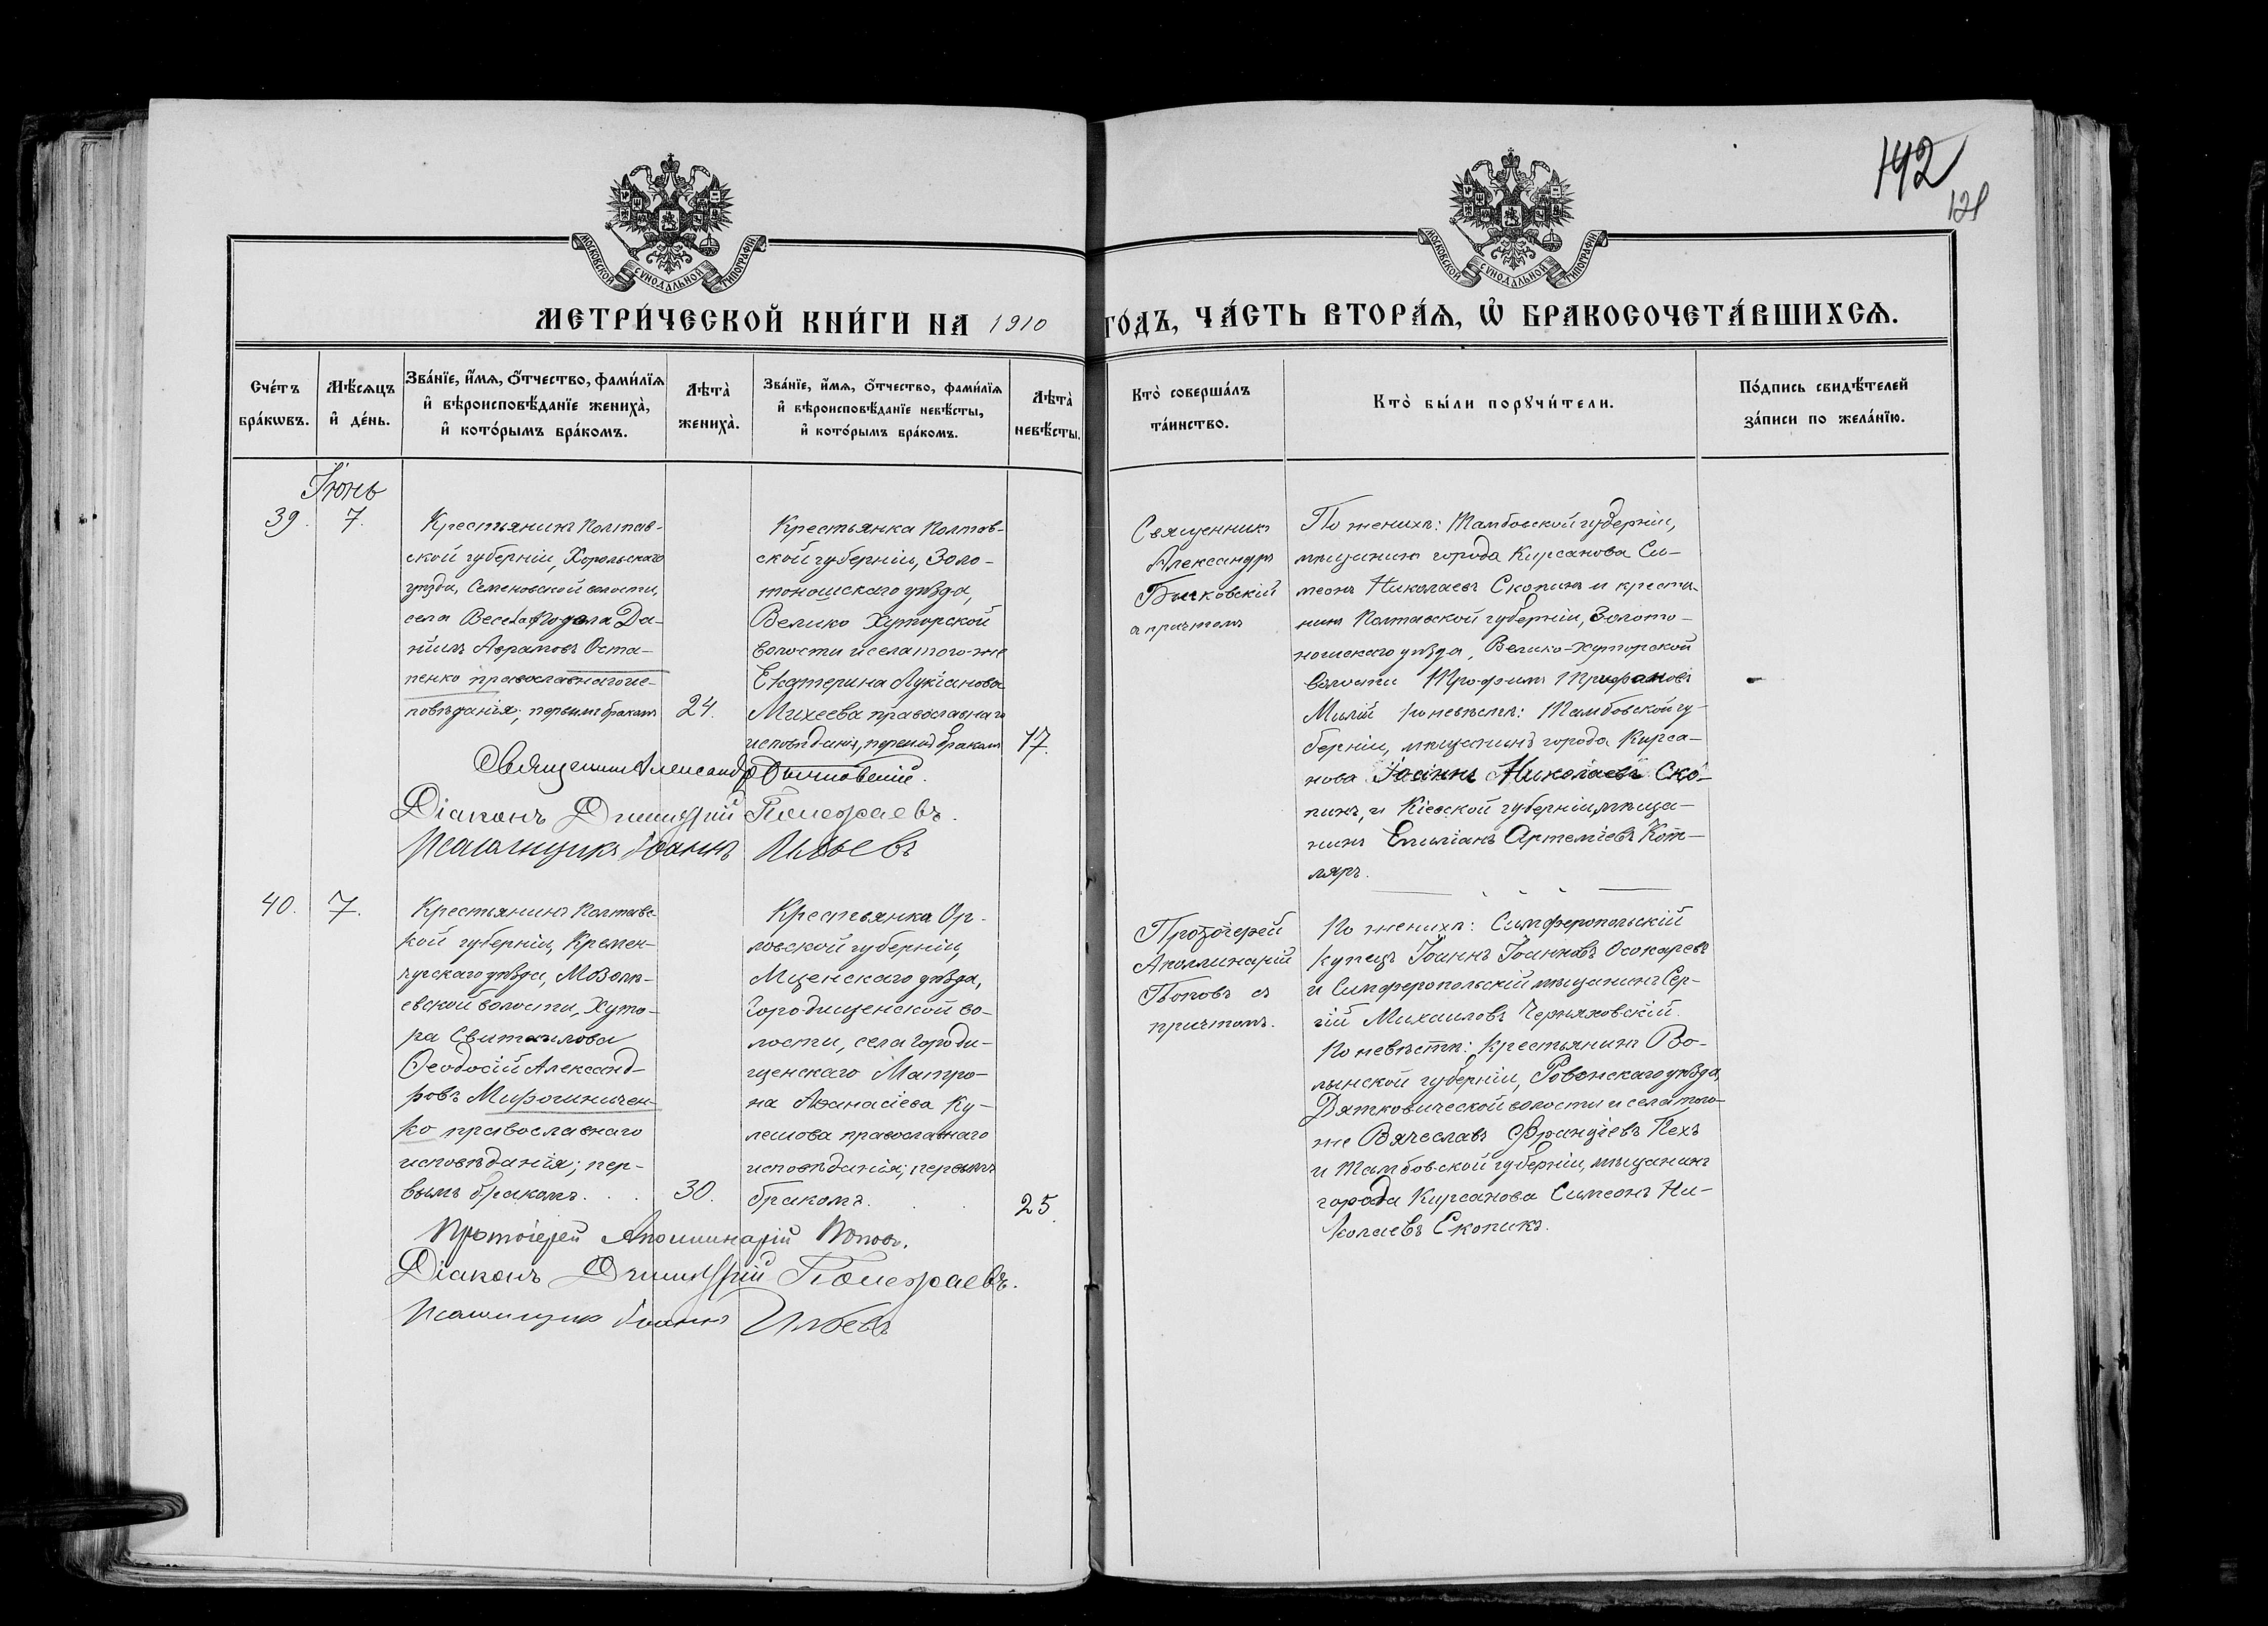 142
121
МОСКОВСКОЙ СУНОДАЛЬНОЙ ТИПОГРАФІИ
МОСКОВСКОЙ СУНОДАЛЬНОЙ ТИПОГРАФІИ
МЕТРИ́ЧЕСКОЙ КНИ́ГИ НА 1910 ГО́ДЪ, ЧА́СТЬ ВТОРА́Ѧ, Ѡ҆ БРАКОСОЧЕТА́ВШИХСѦ.
Сче́тъ бра́кѡвъ.
Мѣ́сѧцъ и҆ де́нь.
Зва́нїе, и҆́мѧ, ѻ҆́тчество, фами́лїѧ
и҆ вѣроисповѣ́данїе жениха̀,
и҆ кото́рымъ бра́комъ.
Лѣта̀ жениха̀.
Зва́нїе, и҆́мѧ, ѻ҆́тчество, фами́лїѧ
и҆ вѣроисповѣ́данїе невѣ́сты,
и҆ кото́рымъ бра́комъ.
Лѣта̀ невѣ́сты.
Кто̀ соверша́лъ та́инство.
Кто̀ бы́ли порꙋчи́тели.
По́дпись свидѣ́телей за́писи по жела́нїю.
Іюнь
39. 7.
Крестьянинъ Полтав-
ской губерніи, Хорольскаго
уѣзда, Семеновской волости,
села Весела Подола Да-
ніилъ Аврамовъ Оста-
пенко православнаго ис-
повѣданія; первымъ бракомъ
24.
Крестьянка Полтав-
ской губерніи, Золо-
тоношскаго уѣзда,
Велико Хуторской
волости и села того-же
Екатерина Лукіанова
Михеева православнаго
исповѣданія, первымъ бракомъ
17.
Священникъ
Александръ
Бычковскій
съ причтомъ
По женихѣ: Тамбовской губерніи,
мѣщанинъ города Кирсанова Си-
меонъ Николаевъ Скопинъ и крестья-
нинъ Полтавской губерніи, Золото-
ношскаго уѣзда, Велико-Хуторской
волости Трофимъ Трифоновъ
Милій По невѣстѣ: Тамбовской гу-
берніи, мѣщанинъ города Кирса-
нова Іоаннъ Николаевъ Ско-
пинъ, и Кіевской губерніи, мѣща-
нинъ Емиліанъ Артеміевъ Кот-
ляръ.
Священникъ Александръ Бычковскій.
Діаконъ Димитрій Полеждаевъ.
Псаломщикъ Іоаннъ Ильевъ
40. 7.
Крестьянинъ Полтавс-
кой губерніи, Кремен-
чугскаго уѣзда, Мозолѣ-
евской волости, Хуто-
ра Свитайлова
Ѳеодосій Александ-
ровъ Мирошничен-
ко православнаго
исповѣданія; пер-
вымъ бракомъ. . .
30.
Крестьянка Ор-
ловской губерніи,
Мценскаго уѣзда,
Городищенской во-
лости, села Городи-
щенскаго Матро-
на Аѳанасіева Ку-
лешова православнаго
исповѣданія; первымъ
бракомъ. . .
25.
Протоіерей
Аполлинарій
Поповъ съ
причтомъ.
По женихѣ: Симферопольскій
купецъ Іоаннъ Іоанновъ Осокаревъ
и Симферопольскій мѣщанинъ Сер-
гій Михаиловъ Черняховскій.
По невѣстѣ: Крестьянинъ Во-
лынской губерніи, Ровенскаго уѣзда,
Дятковической волости и села того-
же Вячеславъ Францевъ Пехъ
и Тамбовской губерніи, мѣщанинъ
города Кирсанова Симеонъ Ни-
колаевъ Скопинъ.
Протоіерей Аполлинарій Поповъ.
Діаконъ Димитрій Полеждаевъ.
Псаломщикъ Іоаннъ Ильевъ